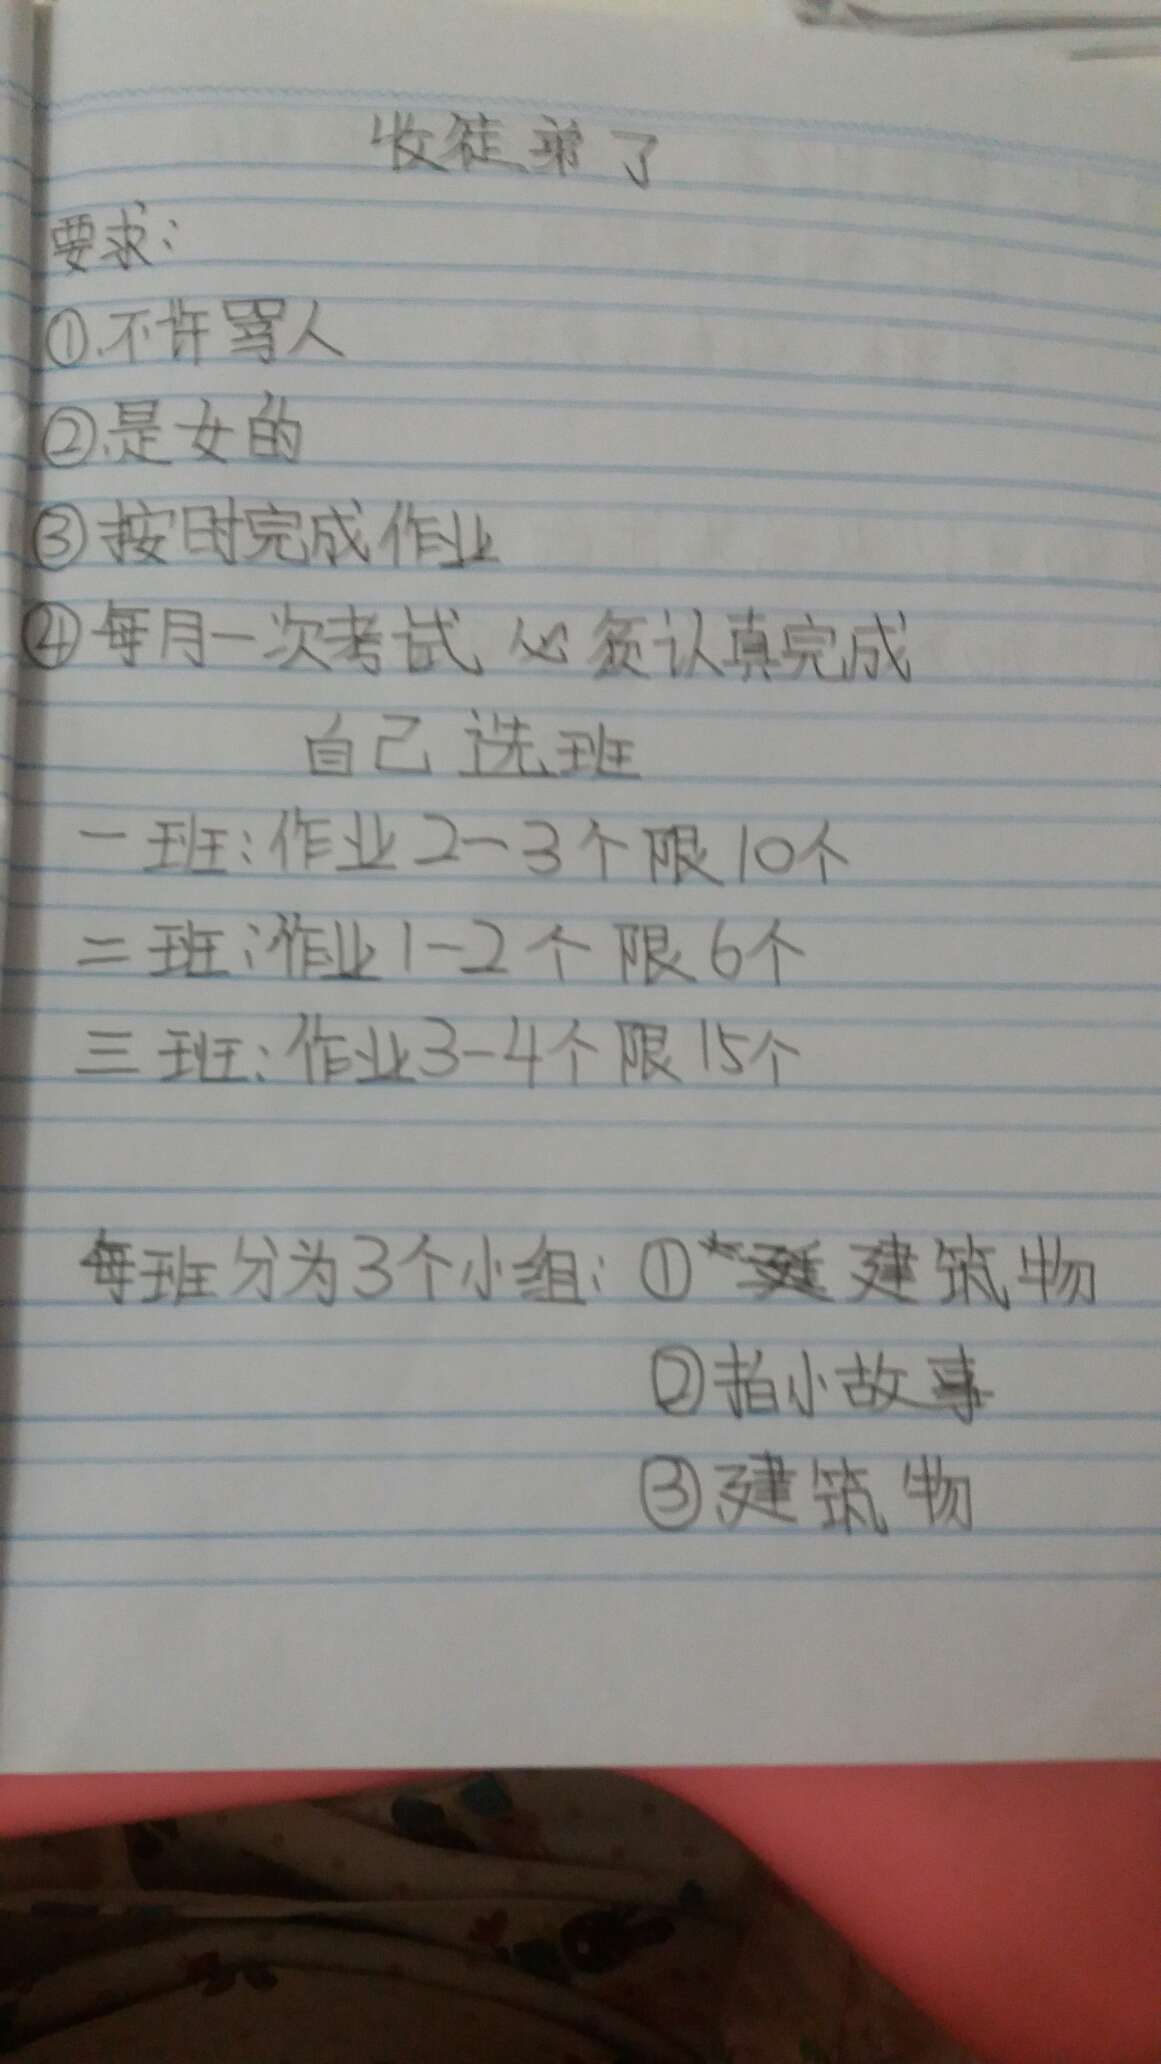 收徒弟了
要求:
①.不许骂人
②.是女的
③按时完成作业
④每月一次考试 必须认真完成
自己选班
一班:作业2-3个限10个
二班:作业1-2个限6个
三班:作业3-4个限15个
每班分为3个小组:①建筑物
②拍小故事
③建筑物